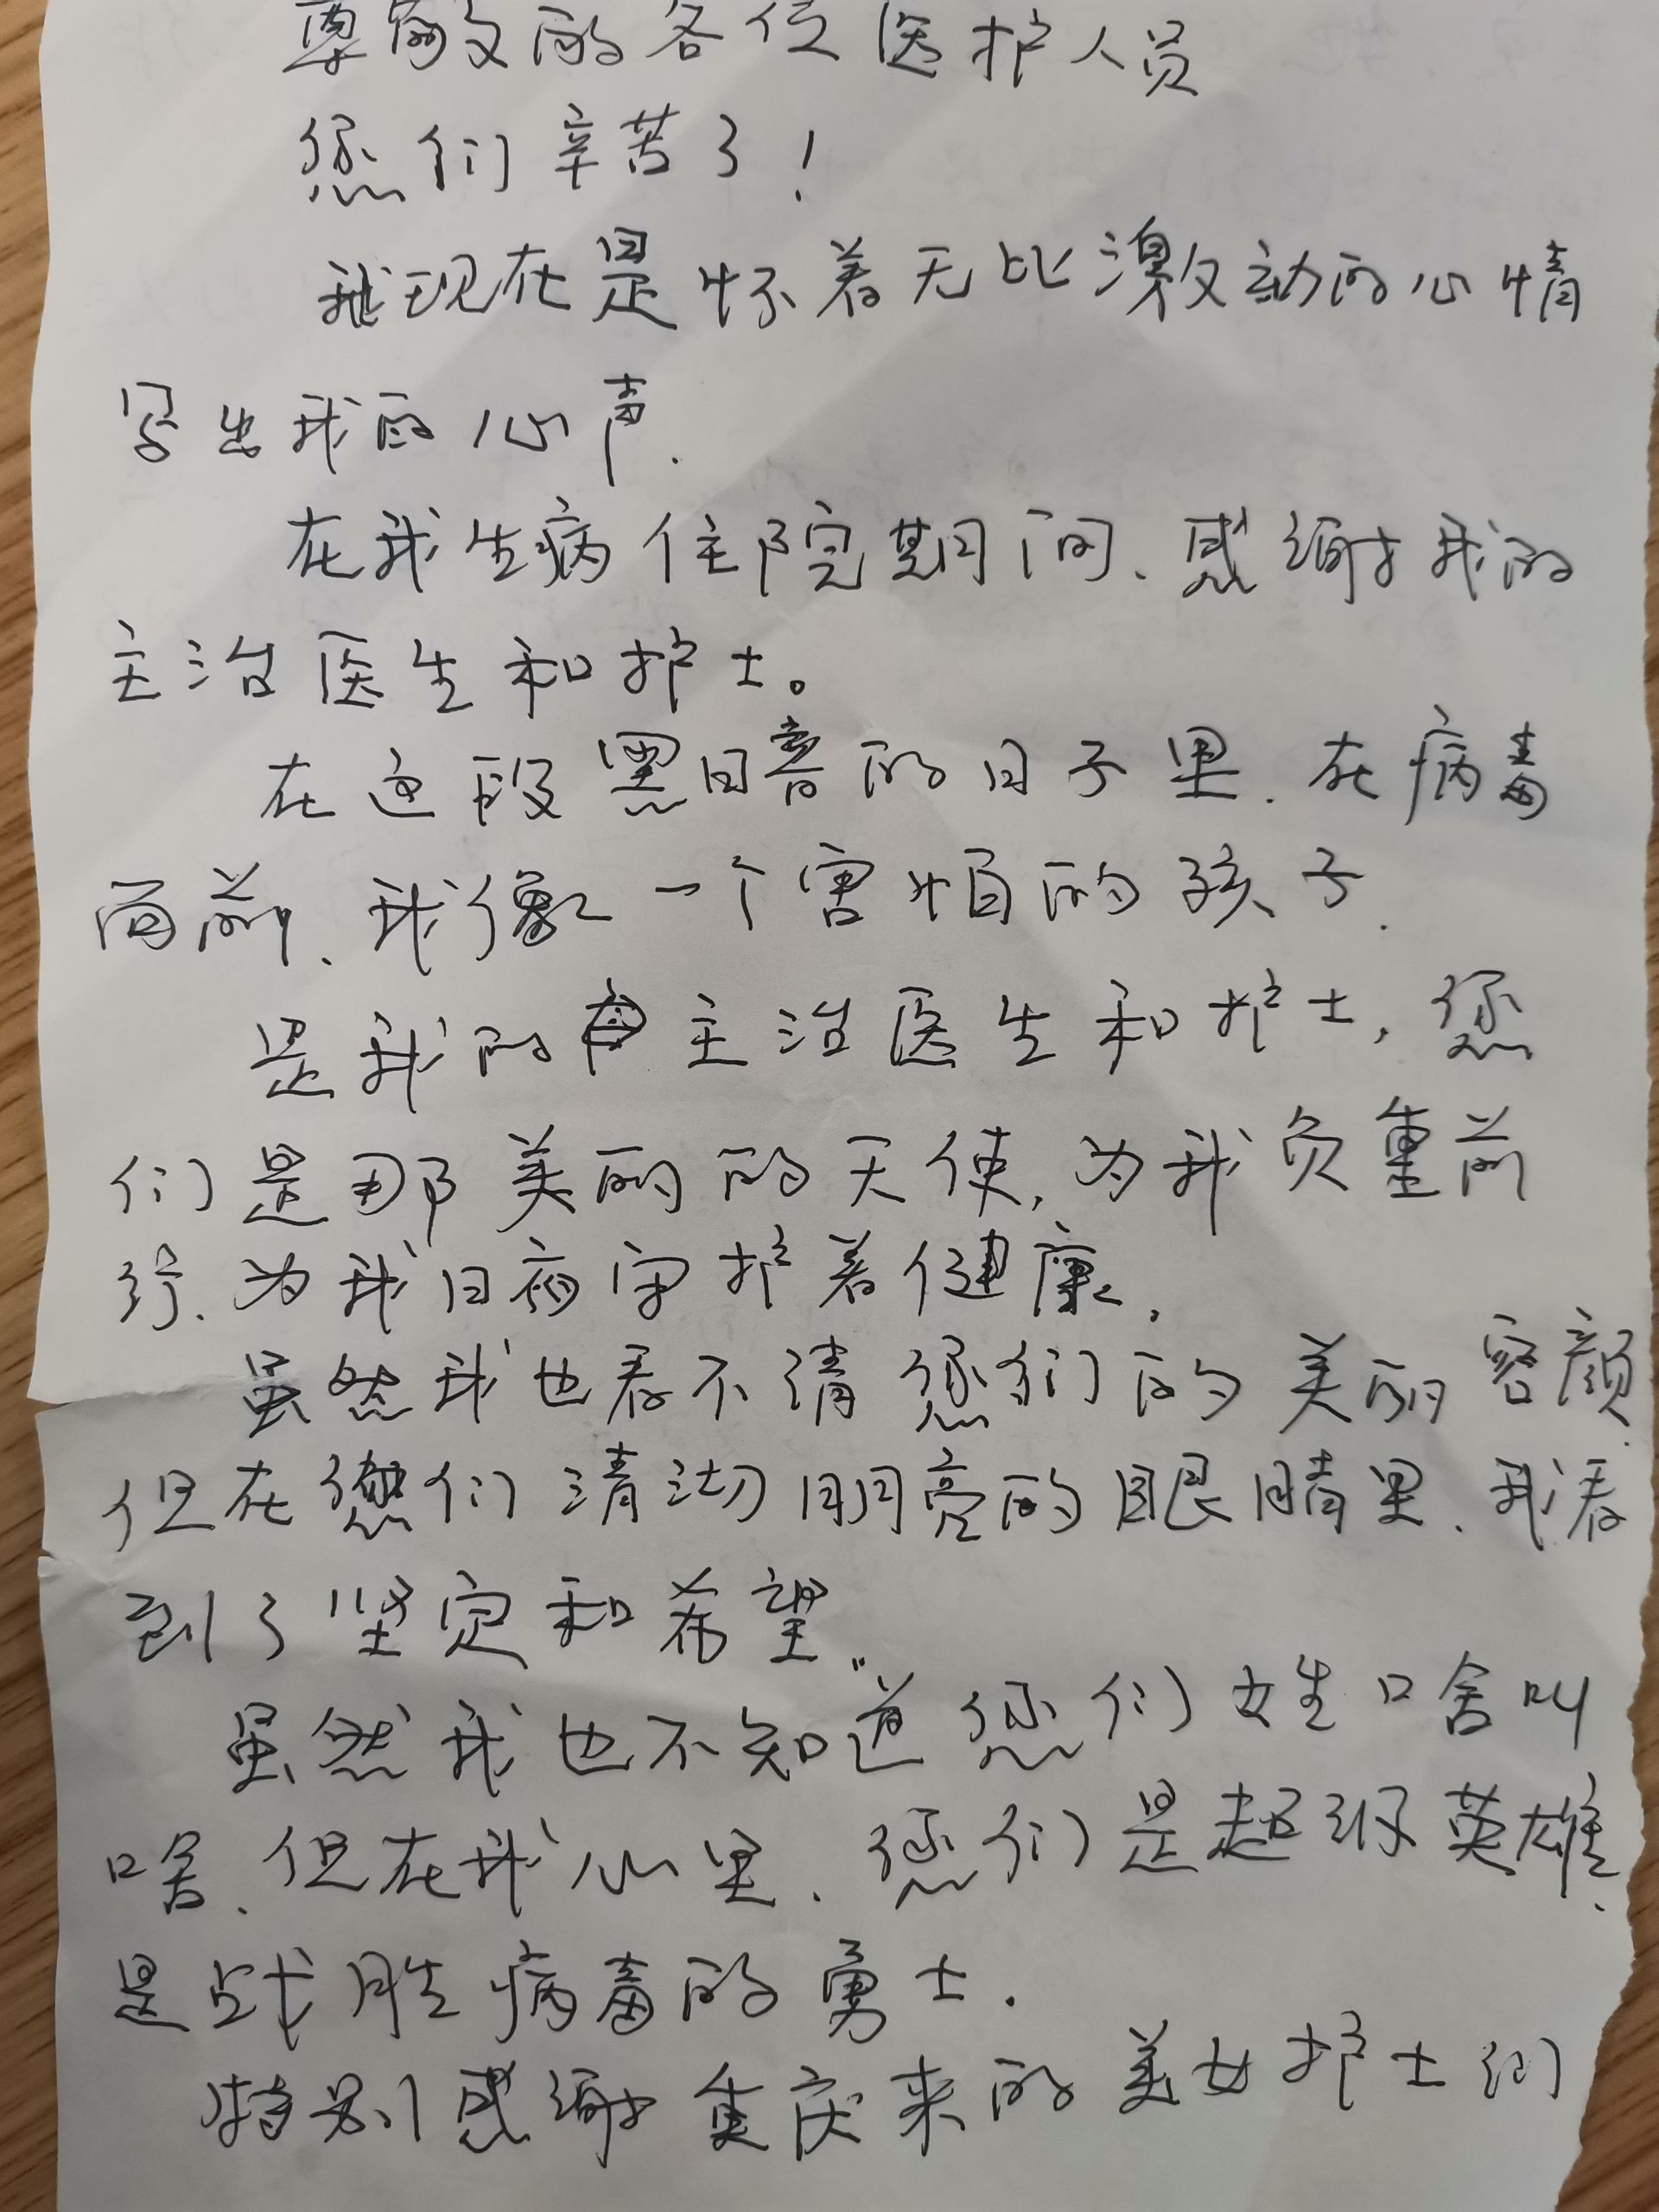 尊敬的各位医护人员
您们辛苦了!
我现在是怀着无比激动的心情
写出我的心声.
在我生病住院期间、感谢我的
主治医生和护士。
在这段黑暗的日子里.在病毒
面前、我像一个害怕的孩子.
是我的主治医生和护士,您
们是那美丽的天使,为我负重前
行.为我日夜守护着健康.
虽然我也看不清您们的美丽容颜.
但在您们清澈明亮的眼睛里、我看
到了坚定和希望。
虽然我也不知道您们姓啥叫
啥、但在我心里、您们是超级英雄、
是战胜病毒的勇士.
特别感谢重庆来的美女护士们